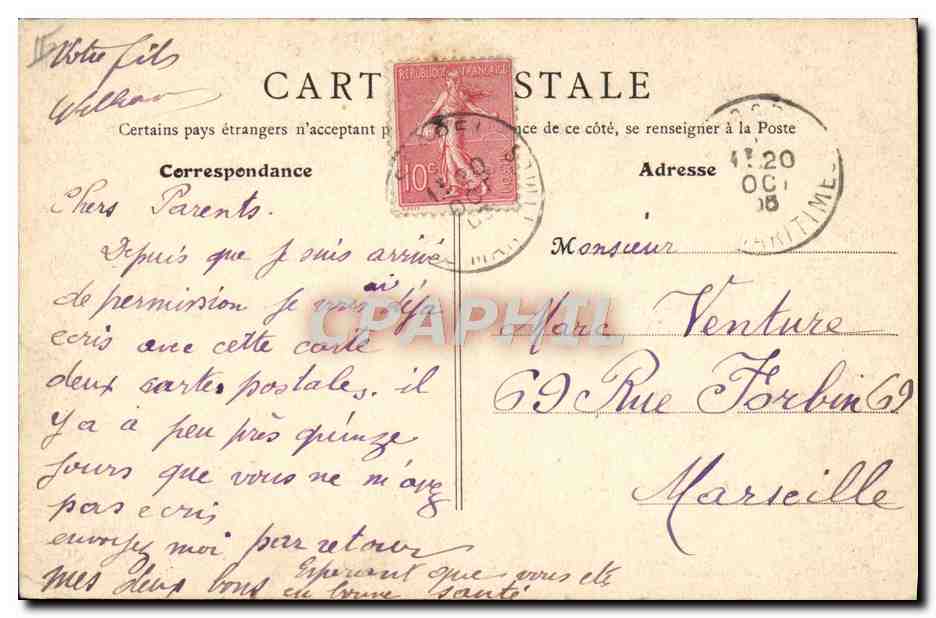 Votre fils
CARTE POSTALE
REPUBLIQUE FRANÇAISE
10c
Certains pays étrangers n'acceptant p ce de ce côté, se renseigner à la Poste
Correspondance
Chers Parents.
Depuis que je suis arrivé
de permission je vous ai déjà
ecris avec cette carte
deux cartes postales. il
y a à peu près quinze
jours que vous ne m'avez
pas ecris
envoyez moi par retour
mes deux bons Esperant que vous ete
en bonne santé
Adresse
20
OC
05
MARITIME
Monsieur
Marc Venture
69 Rue Forbin 69
Marseille
CPAPHIL